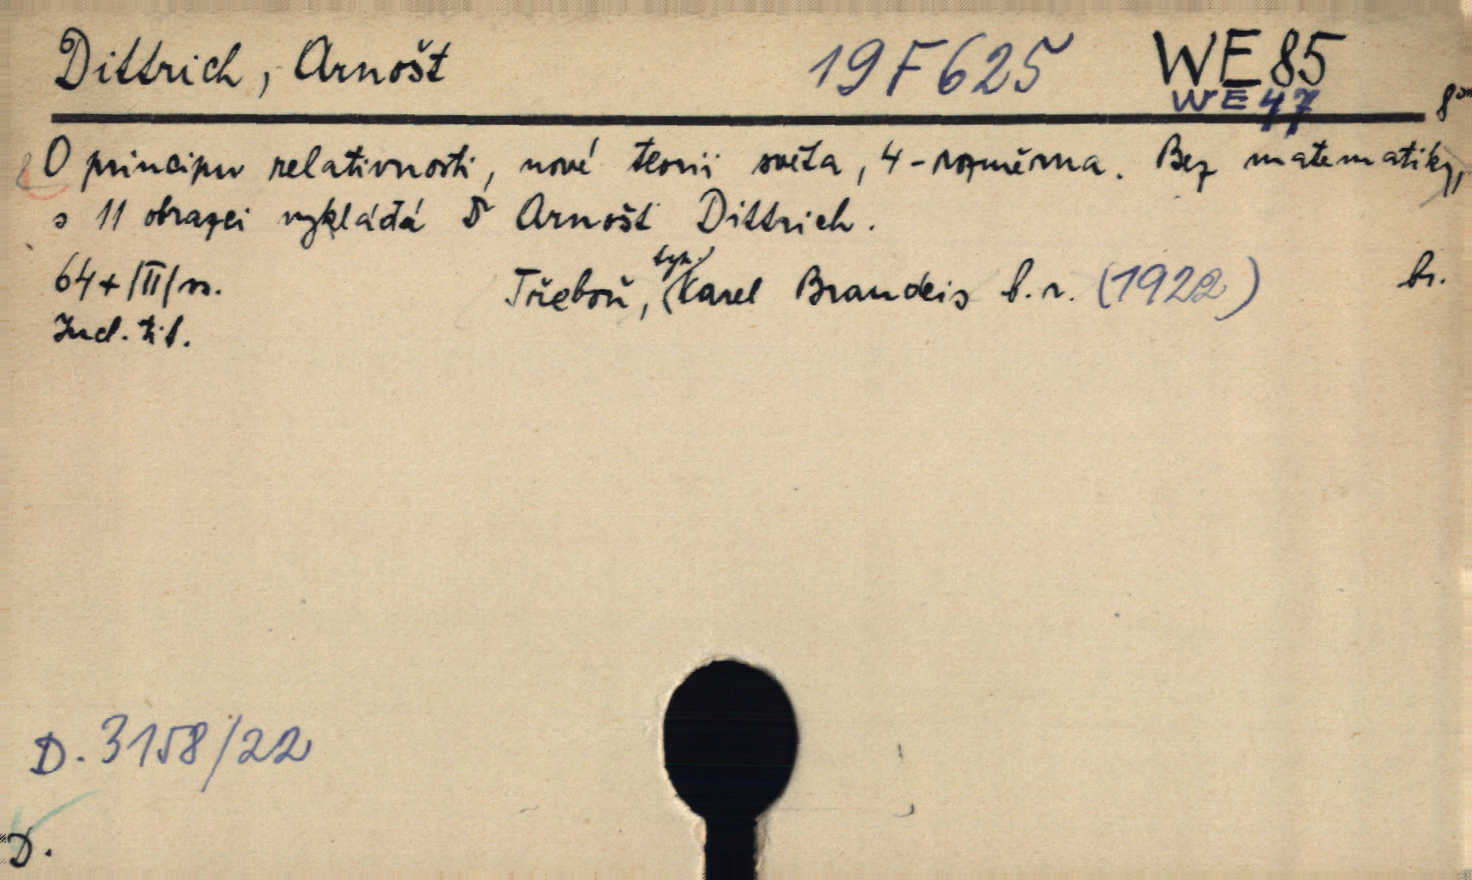 Dittrich, Arnošt 19 F 625 WE 85
WE 47 8°
O principu relativnosti, nové teorii světa, 4-rozměrna. Bez matematiky,
s 11 obrazci vykládá Dr Arnošt Dittrich.
64 + /II/ s. Třeboň, typ. Karel Brandeis b. r. (1922) br.
Incl. tit.
D. 3158/22
D.